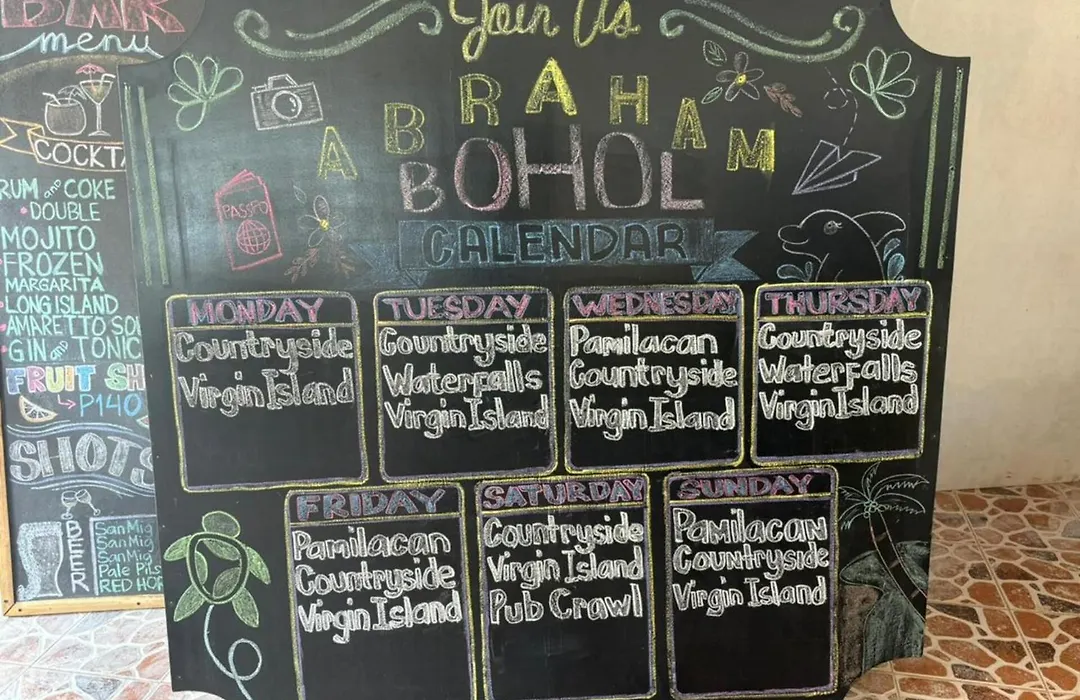 BAR
menu
COCKTA
RUM and COKE
• DOUBLE
MOJITO
FROZEN
MARGARITA
• LONG ISLAND
• AMARETTO SOU
• GIN and TONIC
FRUIT SH
P140
SHOTS
BEER
San Mig
San Mig
San Mig
Pale Pils
RED HOR
Join Us
ABRAHAM
BOHOL
CALENDAR
PASSPO
MONDAY
Countryside
Virgin Island
TUESDAY
Countryside
Waterfalls
Virgin Island
WEDNESDAY
Pamilacan
Countryside
Virgin Island
THURSDAY
Countryside
Waterfalls
Virgin Island
FRIDAY
Pamilacan
Countryside
Virgin Island
SATURDAY
Countryside
Virgin Island
Pub Crawl
SUNDAY
Pamilacan
Countryside
Virgin Island